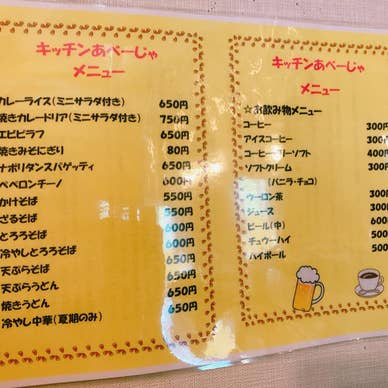 キッチンあべーじゃ
メニュー
カレーライス(ミニサラダ付き) 650円
焼きカレードリア(ミニサラダ付き) 750円
エビピラフ 650円
焼きみそにぎり 80円
ナポリタンスパゲッティ 650円
ペペロンチーノ 600円
かけそば 550円
ざるそば 550円
とろろそば 600円
冷やしとろろそば 650円
天ぷらそば 650円
天ぷらうどん 650円
焼きうどん 650円
冷やし中華(夏期のみ) 650円
キッチンあべーじゃ
メニュー
☆お飲み物メニュー
コーヒー 300円
アイスコーヒー 300円
コーヒーゼリーソフト 400円
ソフトクリーム 300円
(バニラ・チョコ)
ウーロン茶 300円
ジュース 300円
ビール(中) 500円
チューハイ 500
ハイボール 500